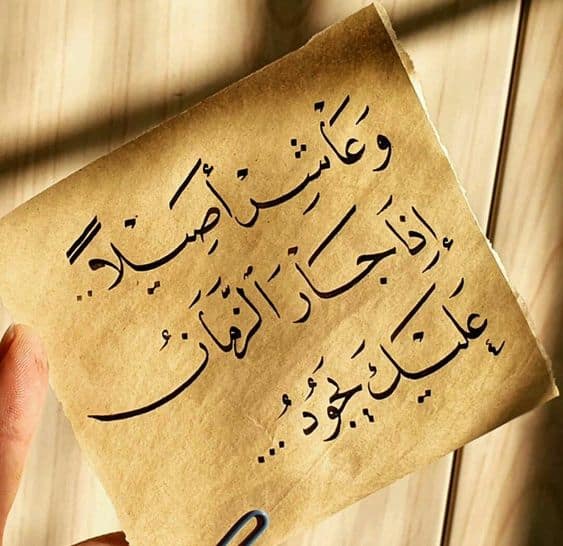 وَعَاشِر أَصِيلاً..
إِذَا جَارَ اَلزَّمَانُ
عَلَيْكَ يَجُودُ...